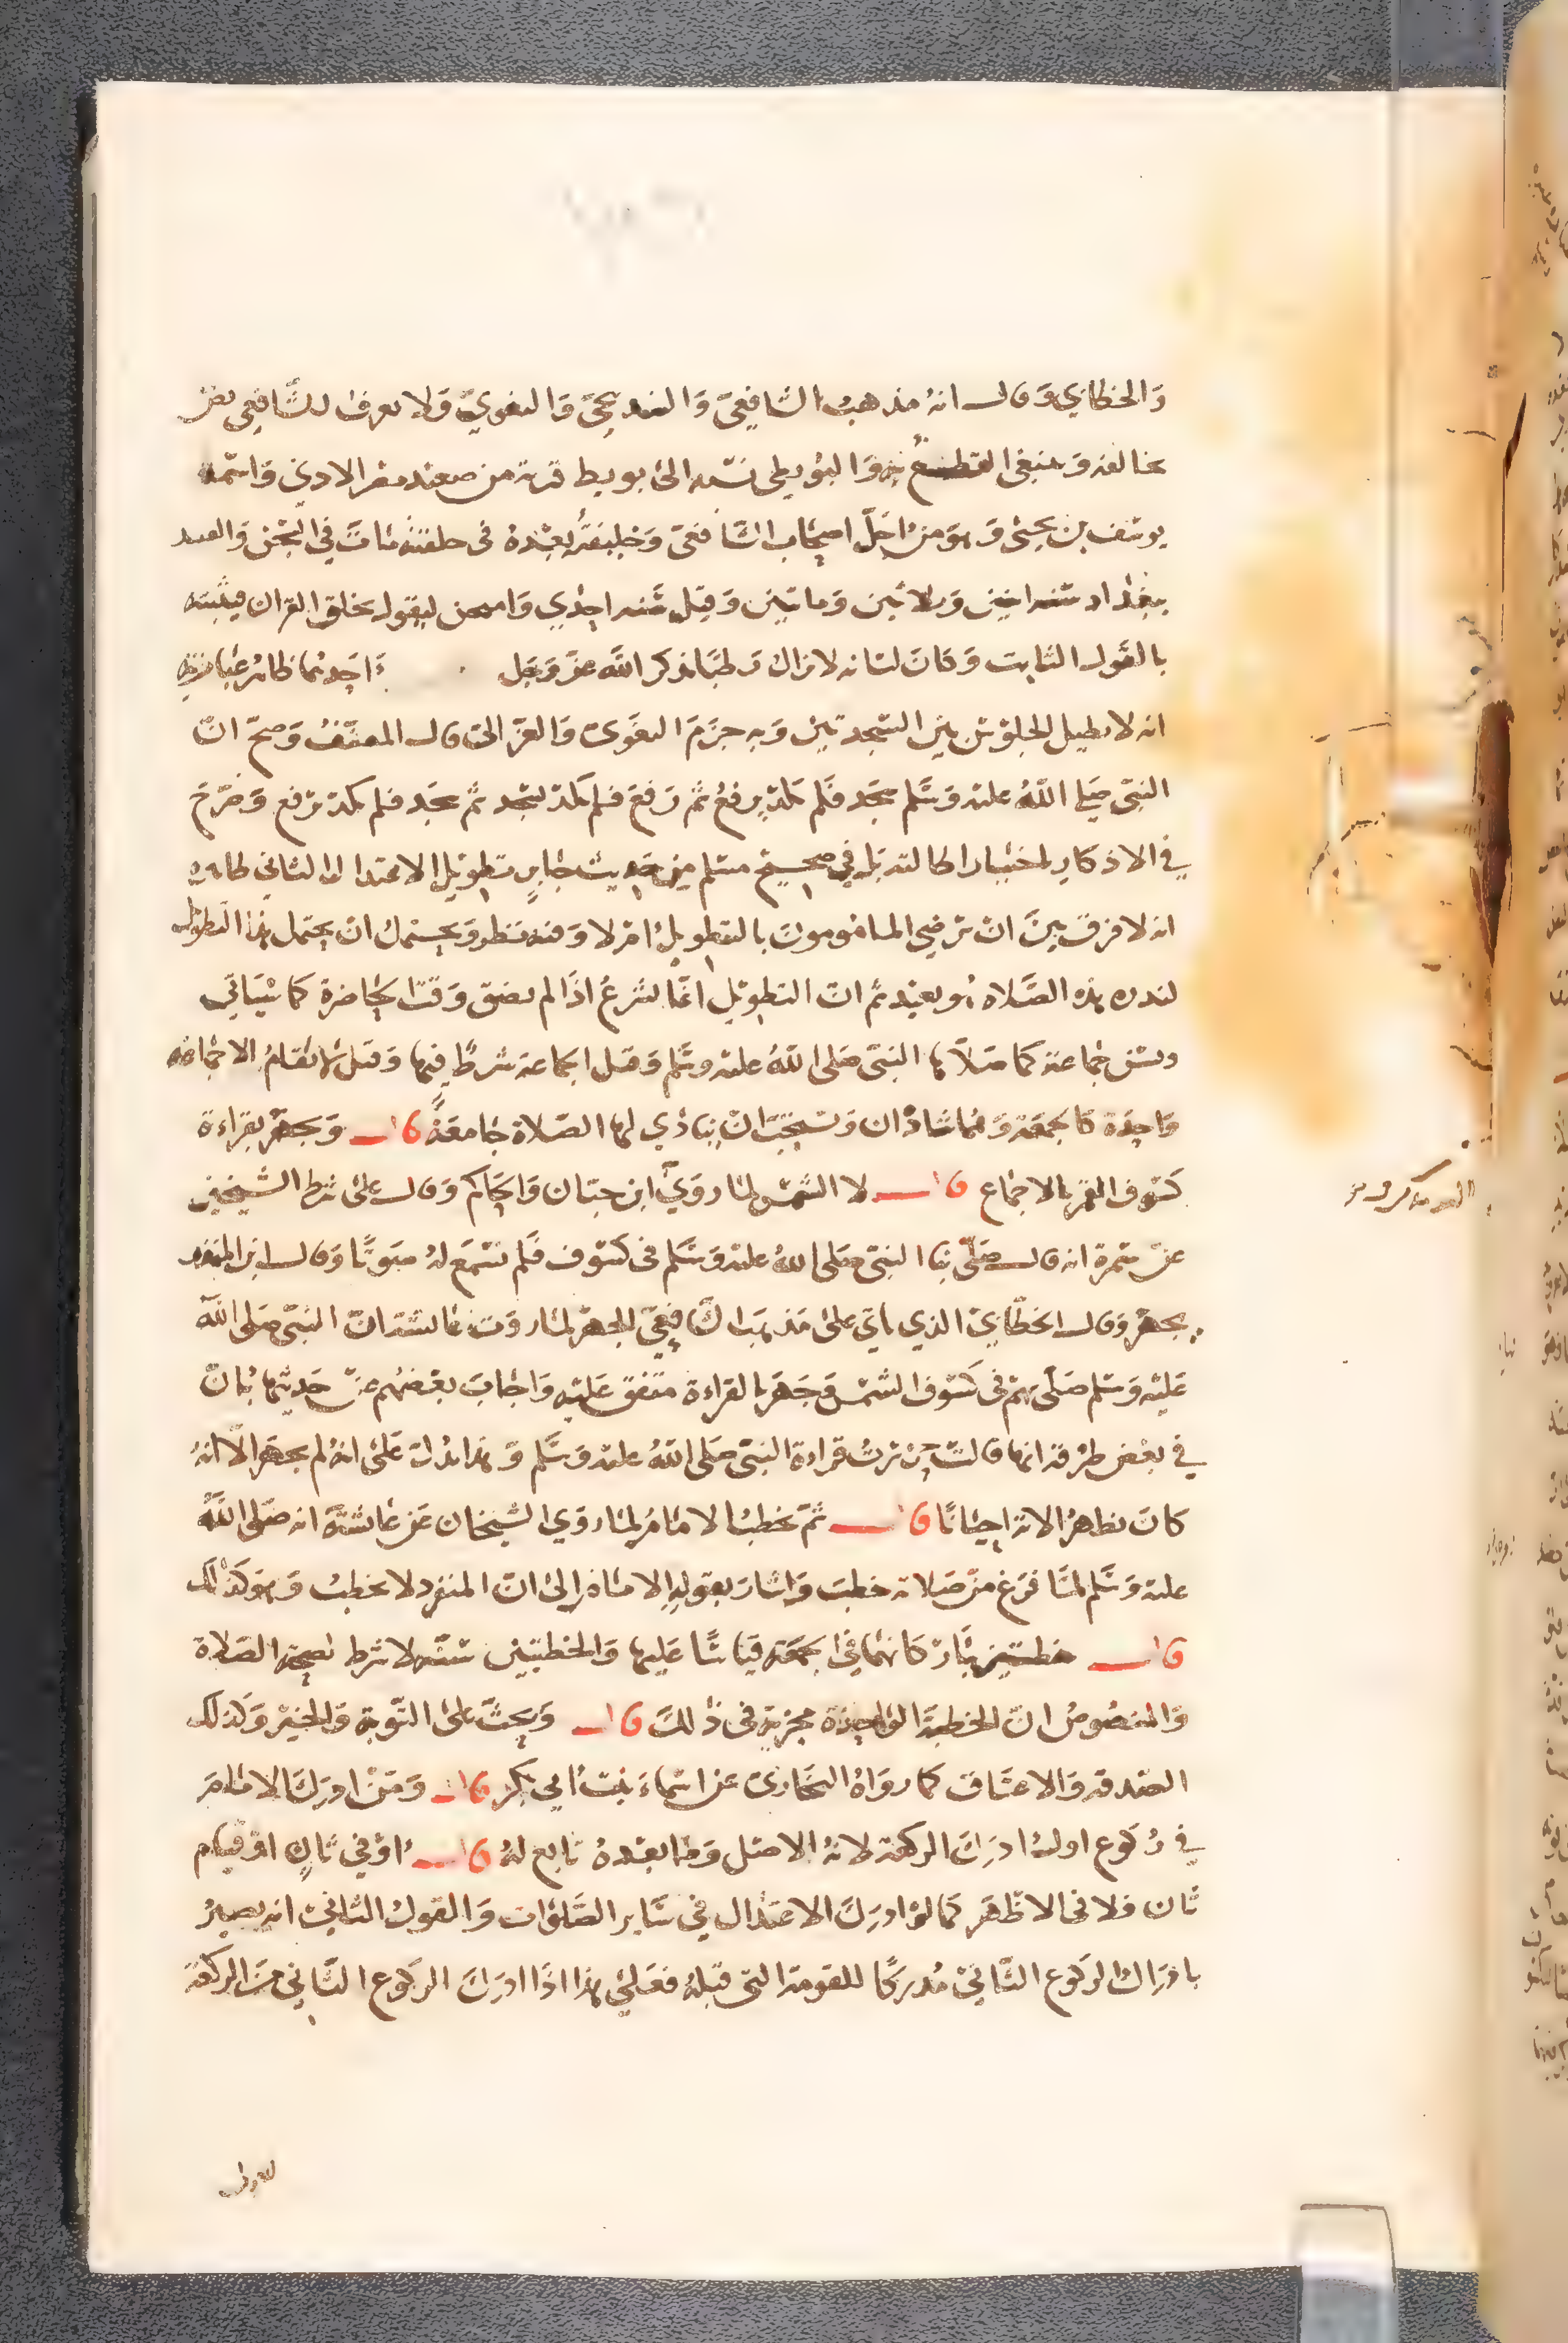 والخطابي وقال انه مذهب الشافعي والبندنيجي والبغوي ولا يعرف للشافعي نص
يخالفه وينبغي القطع به والبويطي نسبه الى بويط قرية من صعيد مصر الادنى واسمه
يوسف بن يحيى وهو من اجل اصحاب الشافعي وخليفته بعده في حلقته مات في السجن والقيد
ببغداد سنه اثنين وثلاثين وماتين وقيل سنه احدي وامتحن ليقول بخلق القران فيثبته
بالقول الثابت وكان لسانه لا يزال رطبا بذكر الله عز وجل واحدهما ظاهر عبارته
انه لا يطيل الجلوس بين السجدتين وبه جزم البغوي والغزالي قال المصنف وصح ان
النبي صلي الله عليه وسلم سجد فلم يكد يرفع ثم رفع فلم يكد يسجد ثم سجد فلم يكد يرفع وصرح
في الاذكار باختيار اطالته بل في صحيح مسلم من حديث جابر تطويل الاعتدال الثاني ظاهره
انه لا فرق بين ان ترضي المامومون بالتطويل ام لا وفيه نظر ويحتمل ان يحتمل هذا التطويل
لندره هذه الصلاه وهو بعيد ثم ان التطويل انما يشرع اذا لم يضق وقتا لحاضرة كما سياتي
وتسن جماعة كما صلاها النبي صلى الله عليه وسلم وقيل الجماعة شرط فيها وقيل لا تقام الا جماعه
واحدة كالجمعة وهما شاذان وتستحب ان ينادي لها الصلاة جامعة قال ويجهر بقراءة
كسوف القمر بالاجماع قال لا الشمس لما روي ابن حبان والحاكم وقال على شرط الشيخين
عن سمرة انه قال صلى بنا النبي صلى الله عليه وسلم في كسوف فلم نسمع له صوتا وقال ابن المنذر
يجهر وقال الخطابي الذي ياتي على مذهب الشافعي الجهر لما روت عائشة ان النبي صلى الله
عليه وسلم صلى بهم في كسوف الشمس وجهر بالقراءة متفق عليه واجاب بعضهم عن حديثها بان
في بعض طرقه انها قالت حزرت قراءة النبي صلى الله عليه وسلم وهذا يدل على انه لم يجهر الا انه
كان يظهر الاية احيانا قال ثم يخطب الامام لما روي الشيخان عن عائشة انه صلى الله
عليه وسلم لما فرغ من صلاته خطب واشار بقوله الامام الى ان المنفرد لا يخطب وهو كذلك
قال خطبتين باركانهما في الجمعة قياسا عليها والخطبتين سنه لا شرط لصحة الصلاة
والمنصوص ان الخطبة الواحدة مجزية في ذلك قال ويحث على التوبة والخير وكذلك
الصدقه والاعتاق كما رواه البخاري عن اسماء بنت ابي بكر قال ومن ادرك الامام
في ركوع اول ادرك الركعة لانه الاصل وما بعده تابع له قال او في ثان او قيام
ثان فلا في الاظهر كما لو ادرك الاعتدال في ساير الصلوات والقول الثاني انه يصير
بادراك الركوع الثاني مدركا للقومة التي قبله فعلى هذا اذا ادرك الركوع الثاني من الركعة
الاولى